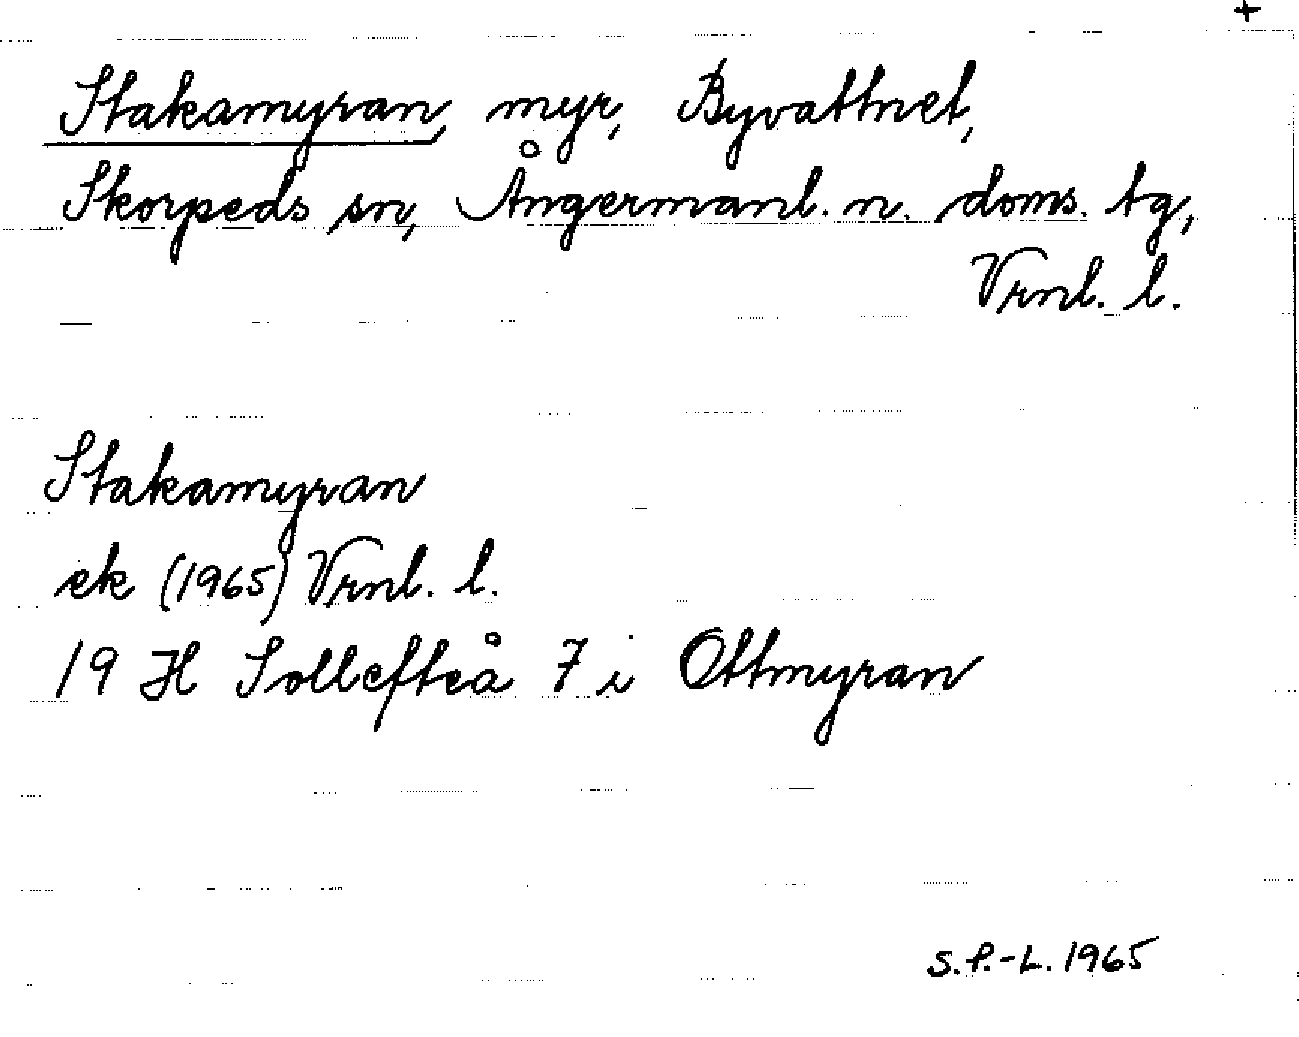 +
Stakamyran, myr, Byvattnet,
Skorpeds sn, Ångermanl. n. doms. tg,
Vrnl. l.
Stakamyran
ek (1965) Vrnl. l.
19 H Sollefteå 7 i Ottmyran
S.P.-L. 1965